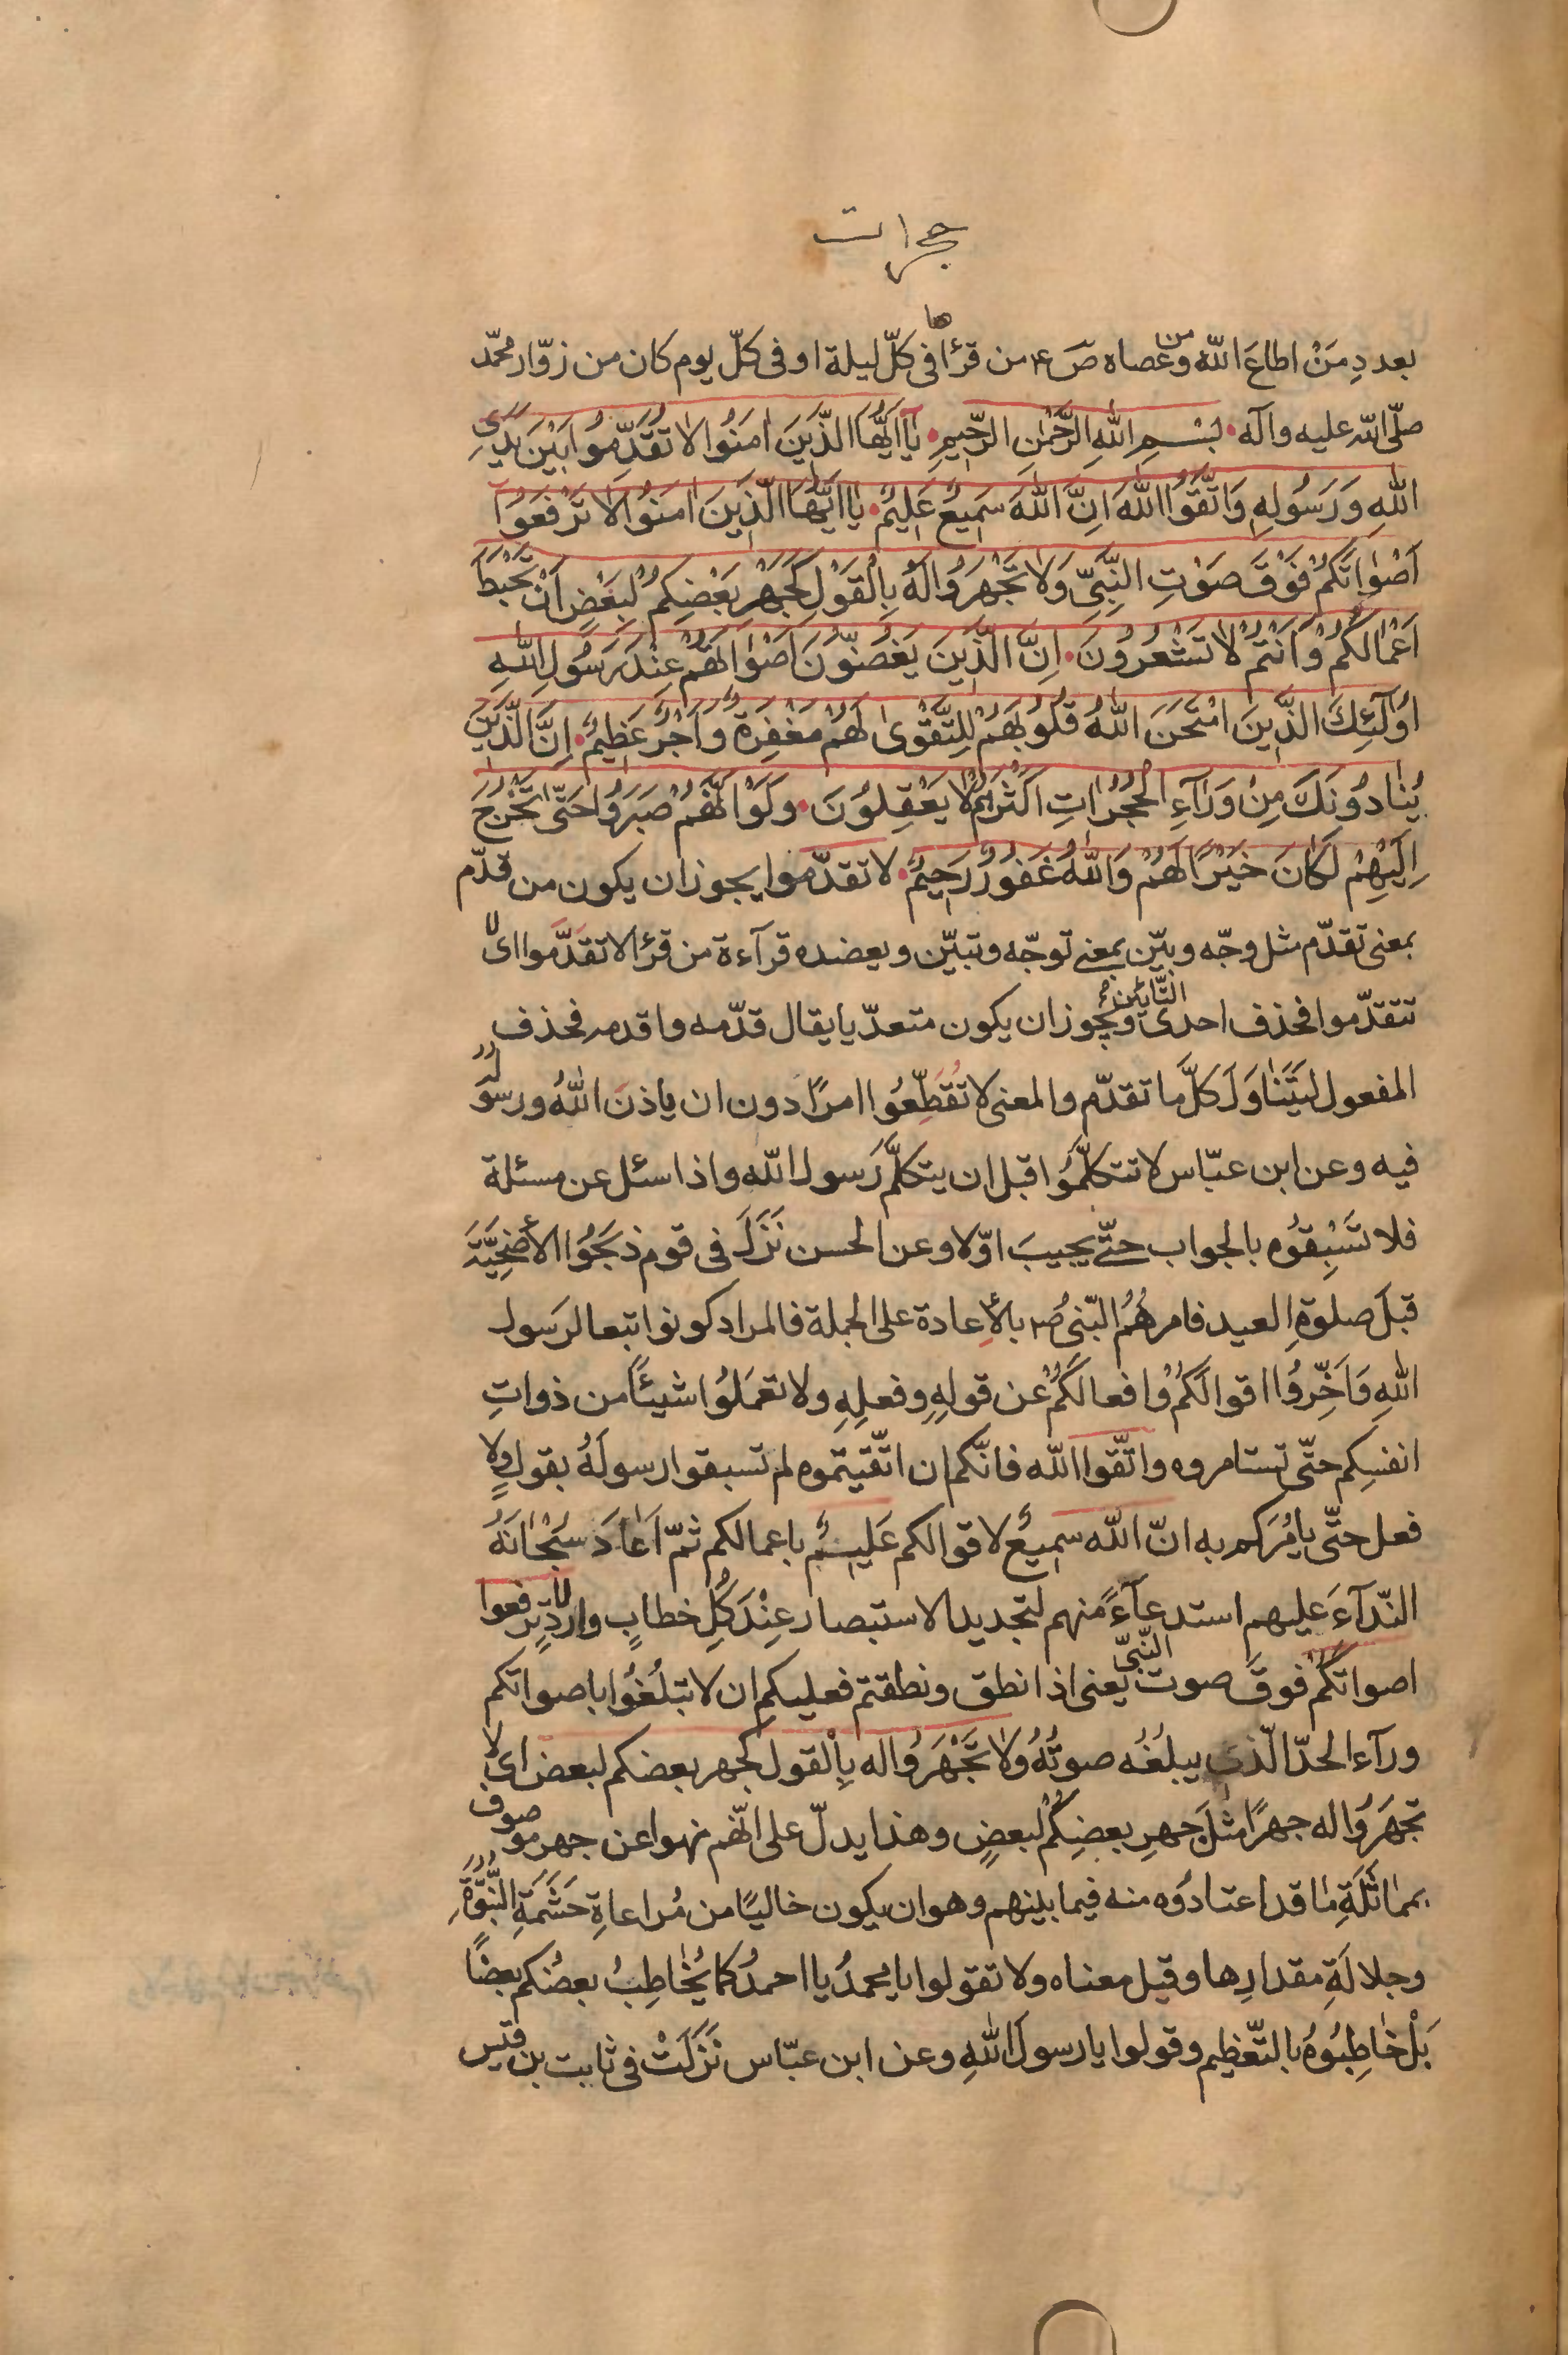 حجرات
بعددِ مَنْ اطاعَ اللّٰه ومن عصاه صٓ ع من قرأها فى كلّ ليلة او فى كلّ يوم كان من زوّار محمّد
صلّى اللّه عليه وآله بِسْمِ اللّٰهِ الرَّحْمٰنِ الرَّحِيمِ يٰآ اَيُّهَا الَّذِينَ اٰمَنُوا لاٰ تُقَدِّمُوا بَيْنَ يَدَىِ
اللّٰهِ وَرَسُولِهِ وَاتَّقُوا اللّٰهَ اِنَّ اللّٰهَ سَمِيعٌ عَلِيمٌ يٰا اَيُّهَا الَّذِينَ اٰمَنُوا لاٰ تَرْفَعُوآ
اَصْوٰاتَكُمْ فَوْقَ صَوْتِ النَّبِىِّ وَلاٰ تَجْهَرُوا لَهُ بِالْقَوْلِ كَجَهْرِ بَعْضِكُمْ لِبَعْضٍ اَنْ تَحْبَطَ
اَعْمٰالُكُمْ وَاَنْتُمْ لاٰ تَشْعُرُونَ اِنَّ الَّذِينَ يَغُضُّونَ اَصْوٰاتَهُمْ عِنْدَ رَسُولِ اللّٰهِ
اُولٰٓئِكَ الَّذِينَ امْتَحَنَ اللّٰهُ قُلُوبَهُمْ لِلتَّقْوىٰ لَهُمْ مَغْفِرَةٌ وَاَجْرٌ عَظِيمٌ اِنَّ الَّذِينَ
يُنٰادُونَكَ مِنْ وَرٰآءِ الْحُجُرٰاتِ اَكْثَرُهُمْ لاٰ يَعْقِلُونَ وَلَوْ اَنَّهُمْ صَبَرُوا حَتّٰى تَخْرُجَ
اِلَيْهِمْ لَكٰانَ خَيْرًا لَهُمْ وَاللّٰهُ غَفُورٌ رَحِيمٌ لا تقدّموا يجوز ان يكون من قدّم
بمعنى تقدّم مثل وجّه وبيّن بمعنى توجّه وتبيّن ويعضده قرآءة من قرأ لا تقدَّموا اى لا
تتقدّموا فحذف احدى التّائين ويجوز ان يكون متعدّيا يقال قدّمه واقدمه فحذف
المفعول ليَتَناوَلَ كلَّ ما تقدّم والمعنى لا تُقَطِّعُوا امرًا دون ان ياذنَ اللّٰهُ ورسوله
فيه وعن ابن عبّاس لا تتكلّمُوا قبل ان يتكلّم رَسول اللّه واذا سئل عن مسئلة
فلا تَسْبِقُوه بالجواب حتّى يجيبَ اوّلا وعن الحسن نَزَلَ فى قوم ذبَحُوا الأُضْحِيَّةَ
قبلَ صلوةِ العيد فامرهُمُ النّبىُ ص بالإعادة على الجملة فالمراد كونوا تبعا لرَسول
اللّٰهِ وَاَخِّرُوا اقوالَكُمْ وافعالَكُمْ عن قولِهِ وفعلِهِ ولا تعمَلُوا شيئًا من ذواتِ
انفسِكم حتّى تستامروه واتّقوا اللّٰه فانّكم ان اتّقيتموه لم تسبقوا رسولَهُ بقولٍ ولا
فعل حتّى يامُرَكم به انّ اللّٰه سميعٌ لاقوالكم عَليمٌ باعمالكم ثمّ اَعادَ سُبْحٰانَهُ
النّدآءَ عليهم استدعآءً منهم لتجديد الاستبصار عِنْدَ كُلِّ خطابٍ واردٍ لا ترفعوا
اصواتَكُمْ فوقَ صوت النّبىّ يعنى اذا نطق ونطقتم فعليكم ان لا تبلُغُوا باصواتكم
ورآء الحدّ الّذى يبلُغُه صوتُهُ ولاٰ تَجْهَرُوا له بِالْقول كجهر بعضكم لبعض اى لا
تجهَرُوا له جهرًا مثلَ جهرِ بعضِكُمْ لبعضٍ وهذا يدلّ على انّهم نهوا عن جهر موصوف
بمماثَلَةِ ما قد اعتادُوه منه فيما بينهم وهو ان يكون خاليًا من مُراعاةِ حَشَمَةِ النّبُوَّةِ
وجلالَةِ مقدارِها وقيل معناه ولا تقولوا يا محمدُ يا احمدُ كما يُخٰاطِبُ بعضُكم بعضًا
بَلْ خٰاطِبُوهُ بالتّعْظيم وقولوا يا رسولَ اللّٰهِ وعن ابن عبّاس نَزَلَتْ فى ثابت بن قيس